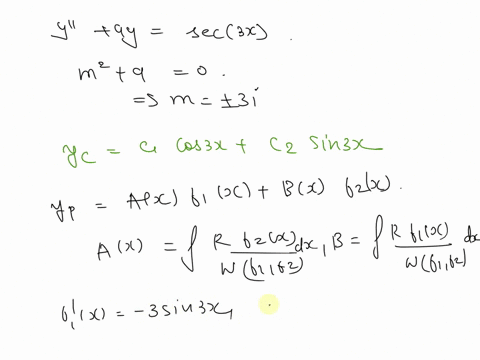 y'' + 9y = sec(3x) .
m² + 9 = 0 .
=> m = ±3i
y_c = c₁ cos3x + c₂ sin3x
y_p = A(x) f₁(x) + B(x) f₂(x) .
A(x) = ∫ R f₂(x)/W(f₁,f₂) dx, B = ∫ R f₁(x)/W(f₁,f₂) dx
f₁'(x) = -3 sin3x,